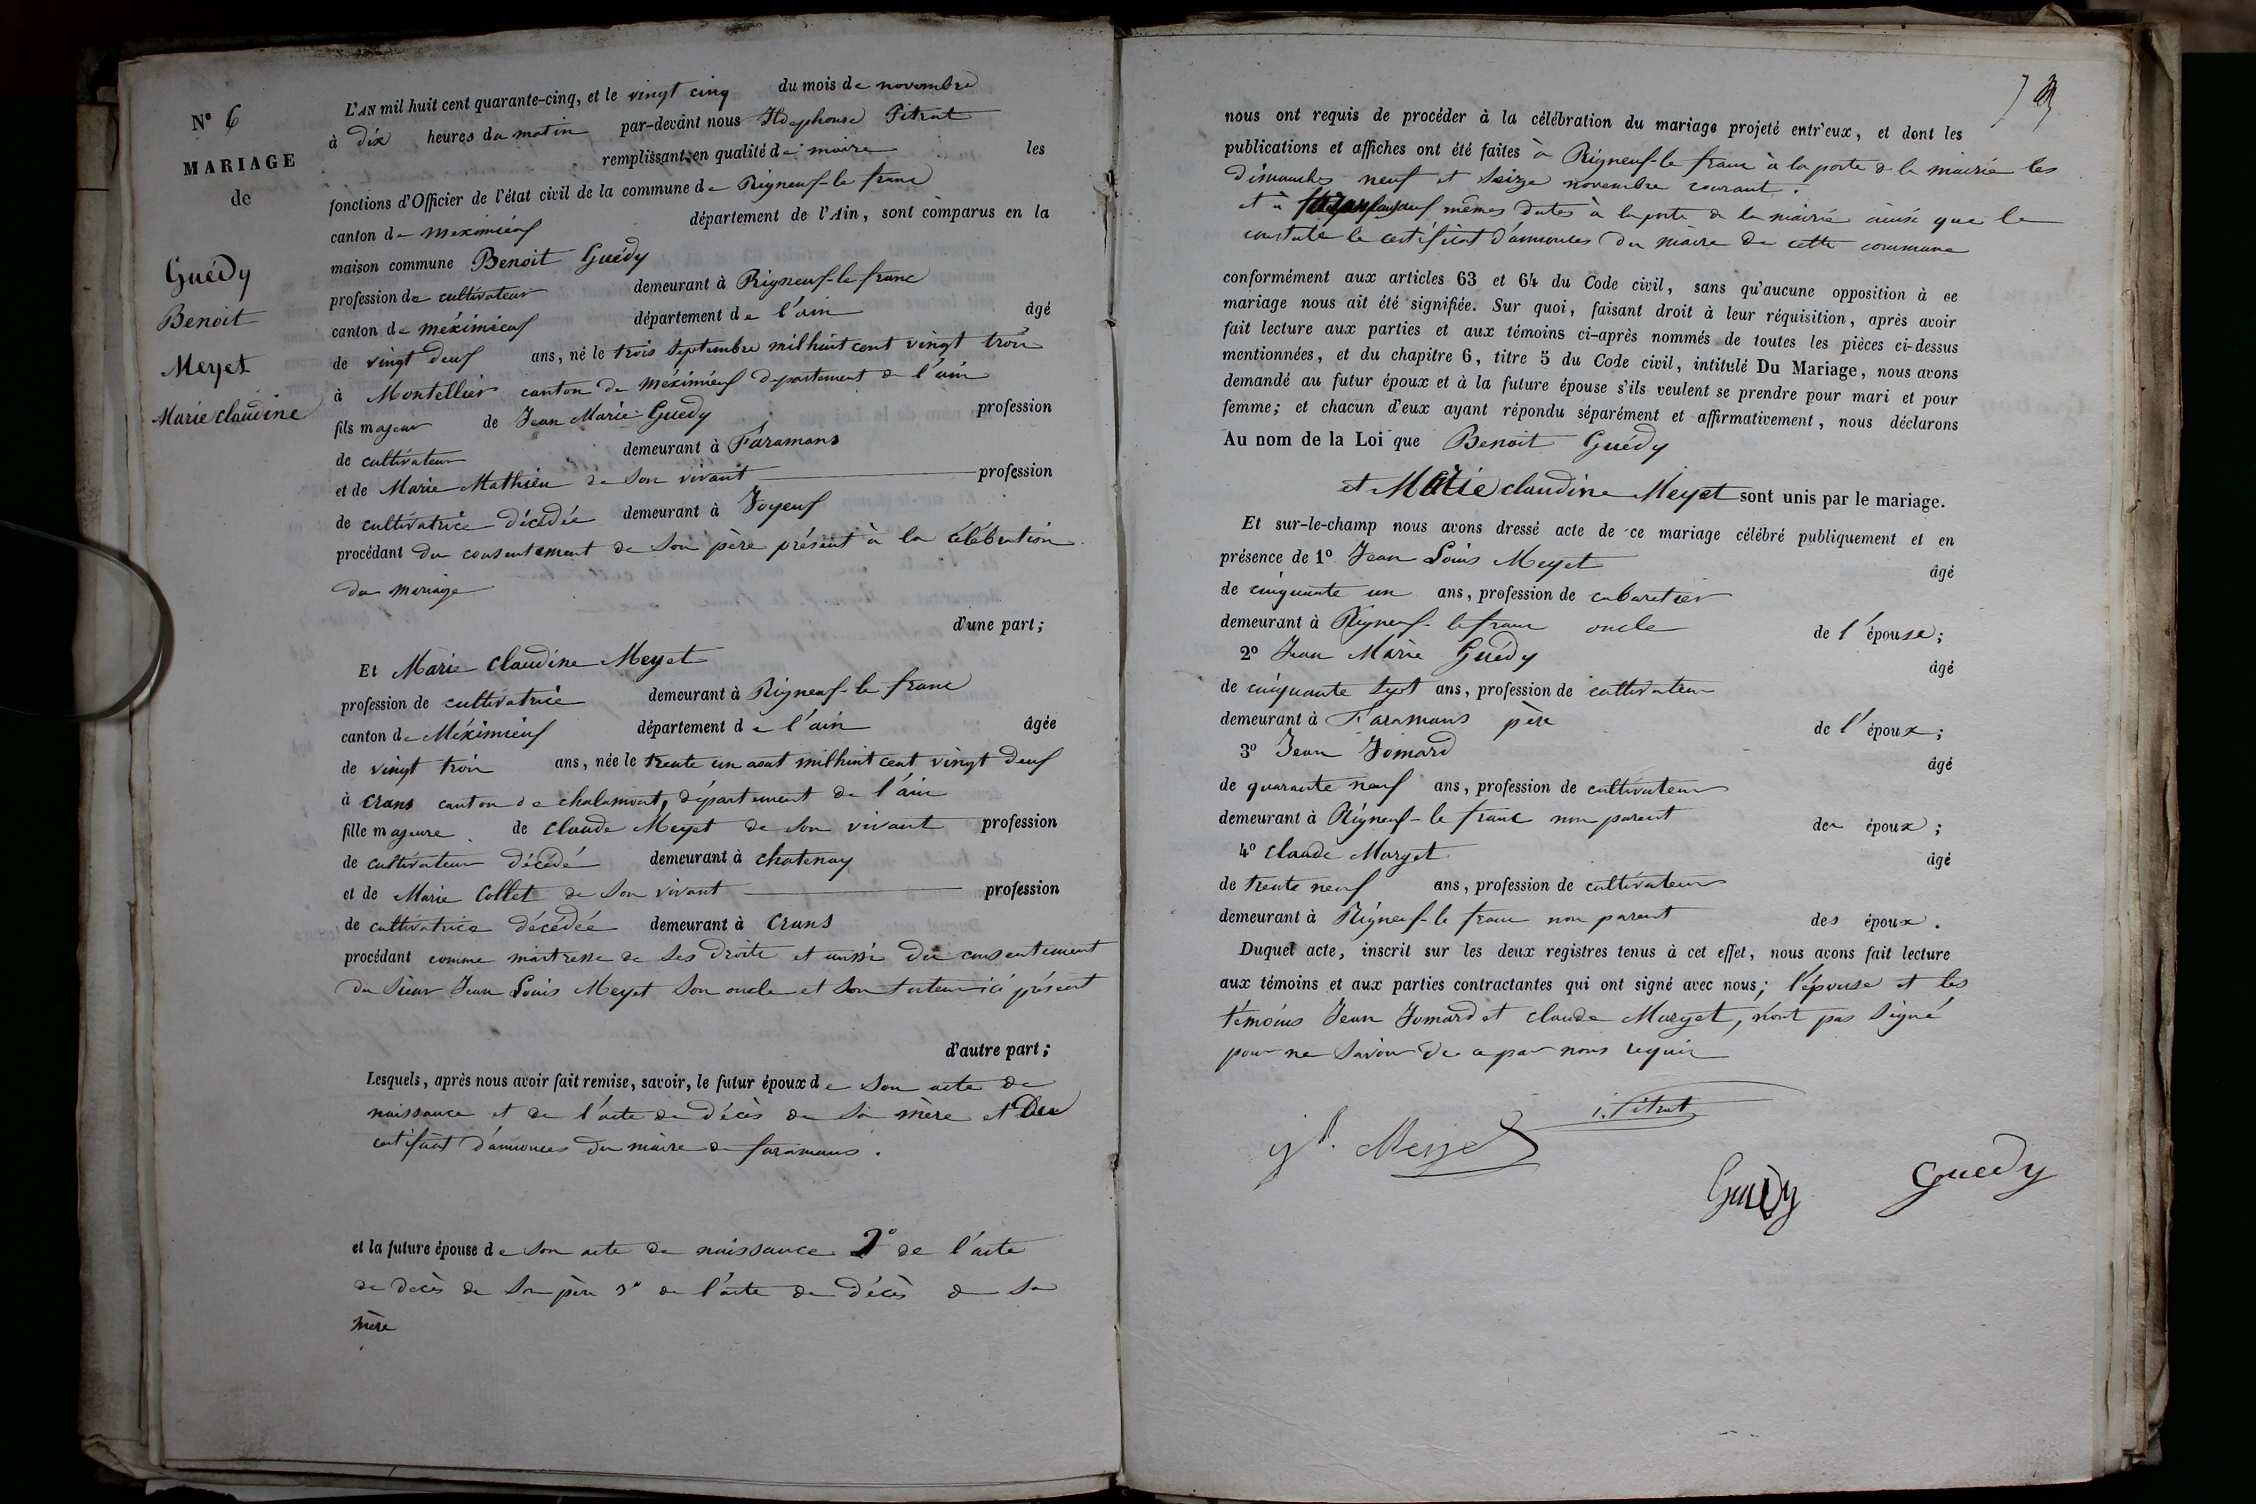 N° 6
MARIAGE
de
Guédy
Benoit
Meyet
Marie claudine
L'AN mil huit cent quarante-cinq, et le vingt cinq du mois de novembre
à dix heures du matin par-devant nous Ildephonse Pitrat
remplissant en qualité de maire les
fonctions d'Officier de l'état civil de la commune de Rigneuf-le franc
canton de meximieuf département de l'Ain, sont comparus en la
maison commune Benoit Guédy
profession de cultivateur demeurant à Rigneuf-le franc
canton de méximieuf département de l'ain âgé
de vingt deuf ans, né le trois septembre mil huit cent vingt trois
à Montellier canton de méximieuf département de l'ain
fils majeur de Jean Marie Guedy profession
de cultivateur demeurant à Faramans
et de Marie Mathieu de son vivant profession
de cultivatrice décédée demeurant à Joyeuf
procédant du consentement de son père présent à la célébration
du mariage
d'une part;
Et Marie claudine Meyet
profession de cultivatrice demeurant à Rigneuf-le franc
canton de Méximieuf département de l'ain âgée
de vingt trois ans, née le trente un aout mil huit cent vingt deuf
à Crans canton de chalamont, département de l'ain
fille majeure de claude Meyet de son vivant profession
de cultivateur décédé demeurant à chatenay
et de Marie Collet de son vivant profession
de cultivatrice décédée demeurant à Crans
procédant comme maitresse de ses droits et aussi du consentement
du sieur Jean Louis Meyet son oncle et son tuteur ici présent
d'autre part;
Lesquels, après nous avoir fait remise, savoir, le futur époux de son acte de
naissance et de l'acte de décès de sa mère et du
certificat d'annonces du maire de faramans.
et la future épouse de son acte de naissance 2° de l'acte
de décès de son père 3° de l'acte de décès de sa
mère
nous ont requis de procéder à la célébration du mariage projeté entr'eux, et dont les
publications et affiches ont été faites à Rigneuf-le franc à la porte de la mairie les
dimanches neuf et seize novembre courant.
et à mêmes dates à la porte de la mairie ainsi que le
constate le certificat d'annonces du maire de cette commune
conformément aux articles 63 et 64 du Code civil, sans qu'aucune opposition à ce
mariage nous ait été signifiée. Sur quoi, faisant droit à leur réquisition, après avoir
fait lecture aux parties et aux témoins ci-après nommés de toutes les pièces ci-dessus
mentionnées, et du chapitre 6, titre 5 du Code civil, intitulé Du Mariage, nous avons
demandé au futur époux et à la future épouse s'ils veulent se prendre pour mari et pour
femme; et chacun d'eux ayant répondu séparément et affirmativement, nous déclarons
Au nom de la Loi que Benoit Guédy
et Marie claudine Meyet sont unis par le mariage.
Et sur-le-champ nous avons dressé acte de ce mariage célébré publiquement et en
présence de 1° Jean Louis Meyet âgé
de cinquante un ans, profession de cabaretier
demeurant à Rigneuf-le franc oncle de l'épouse;
2° Jean Marie Guédy âgé
de cinquante sept ans, profession de cultivateur
demeurant à Faramans père de l'époux;
3° Jean Jomard âgé
de quarante neuf ans, profession de cultivateur
demeurant à Rigneuf-le franc non parent des époux;
4° Claude Marget âgé
de trente neuf ans, profession de cultivateur
demeurant à Rigneuf-le franc non parent des époux.
Duquel acte, inscrit sur les deux registres tenus à cet effet, nous avons fait lecture
aux témoins et aux parties contractantes qui ont signé avec nous; l'épouse et les
témoins Jean Jomard et claude Marget, n'ont pas signé
pour ne savoir de ce par nous requis
i. Pitrat
Meyet
Guedy
Guedy